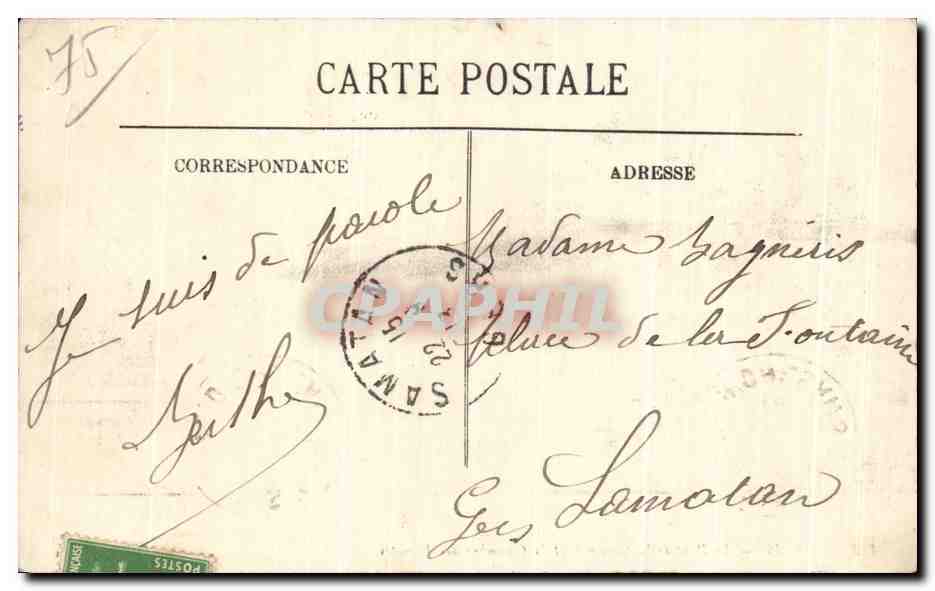 75
CARTE POSTALE
CORRESPONDANCE
ADRESSE
Je suis de parole
Berthe
Madame Bagnéris
Place de la Fontaine
Samatan
Gers
SAMATAN
GERS
22
15
CPAPHIL
POSTES